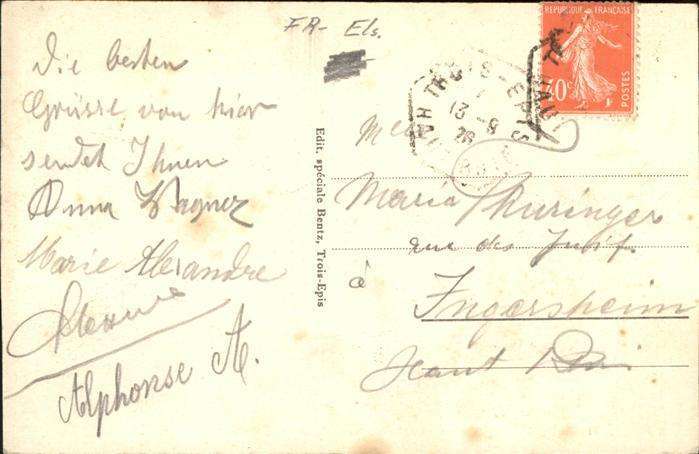 FR- Els.
Die besten
Grüsse von hier
sendet Ihnen
Anna Wagner
Marie Alexandre
Alphonse A.
Edit. spéciale Bentz, Trois-Epis
REPUBLIQUE FRANÇAISE
40c
POSTES
TROIS-EPIS
HAUT-RHIN
13-8
26
Mlle
Maria Thuringer
rue des Juifs
à Ingersheim
Haut Rhin